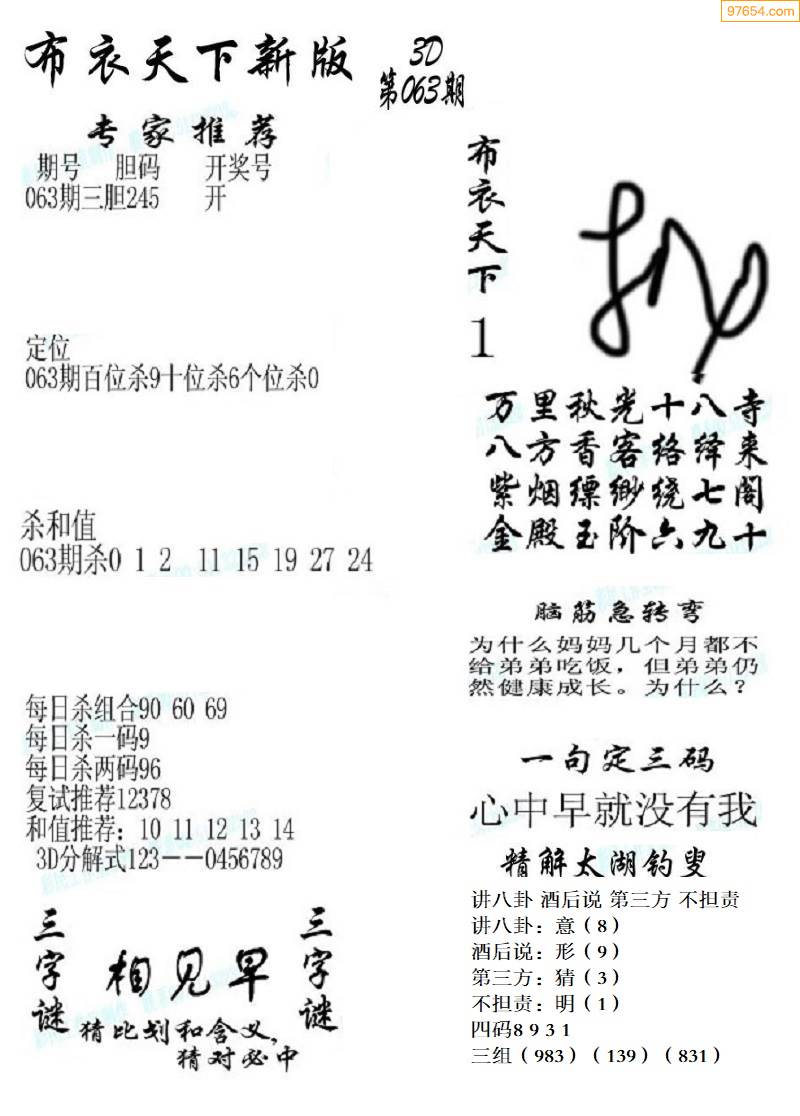 97654.com
布衣天下新版
3D
第063期
专家推荐
期号 胆码 开奖号
063期三胆245 开
定位
063期百位杀9十位杀6个位杀0
杀和值
063期杀0 1 2 11 15 19 27 24
每日杀组合90 60 69
每日杀一码9
每日杀两码96
复试推荐12378
和值推荐：10 11 12 13 14
3D分解式123——0456789
三字谜
相见早
三字谜
猜比划和含义，
猜对必中
布衣天下
1
万里秋光十八寺
八方香客络绎来
紫烟缥缈绕七阁
金殿玉阶六九十
脑筋急转弯
为什么妈妈几个月都不
给弟弟吃饭，但弟弟仍
然健康成长。为什么？
一句定三码
心中早就没有我
精解太湖钓叟
讲八卦 酒后说 第三方 不担责
讲八卦：意（8）
酒后说：形（9）
第三方：猜（3）
不担责：明（1）
四码8 9 3 1
三组（983）（139）（831）